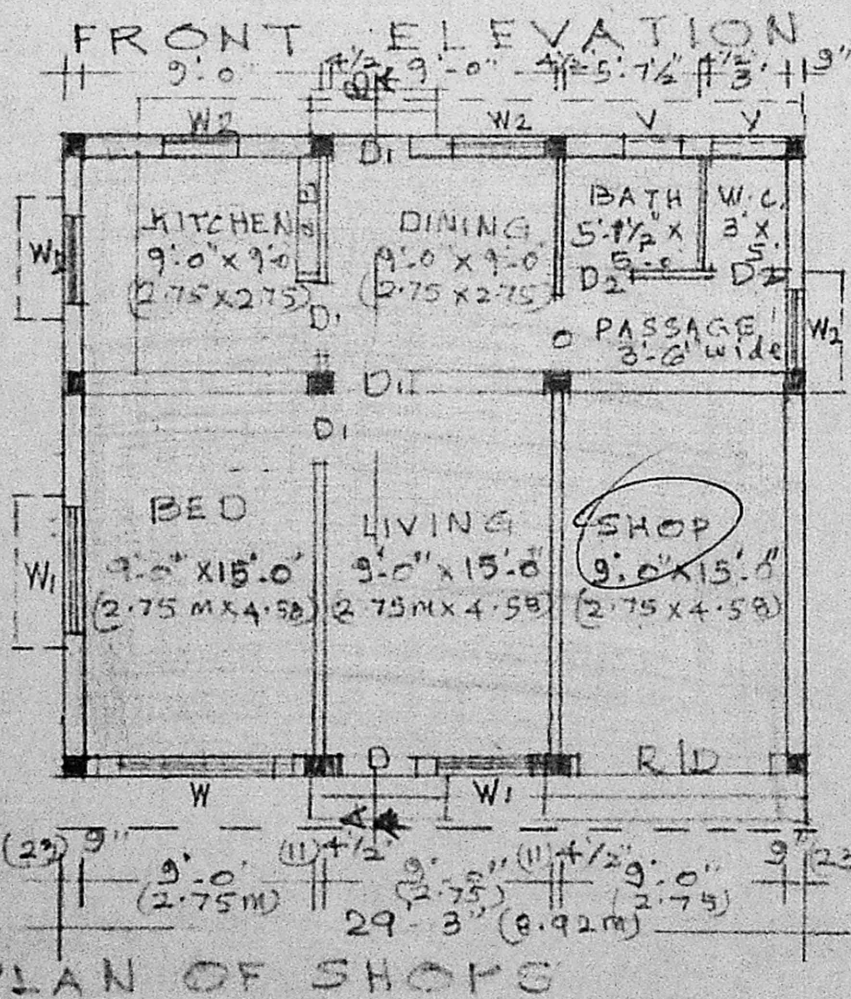 FRONT ELEVATION
9'-0" 4½" 9'-0" 4½" 5'-7½" 4½" 3' 9"
W2 D1 W2 V V
KITCHEN
9'-0" x 9'-0
(2.75 x 2.75)
DINING
9'-0" x 9'-0
(2.75 x 2.75)
BATH
5'-1½" x
5'-0
W.C.
3' x
5'
D2 D2
D1
PASSAGE
3'-6" wide
W2
D1
D1
BED
9'-0" x 15'-0"
(2.75 m x 4.58)
LIVING
9'-0" x 15'-0
(2.75m x 4.58)
SHOP
9'-0" x 15'-0"
(2.75 x 4.58)
W1
W D W1 R/D
A
(23) 9" 9'-0" (11) 4½" 9'-0" (11) 4½" 9'-0" 9" (23
(2.75m) (2.75) (2.75)
29'-3" (8.92m)
PLAN OF SHOPS